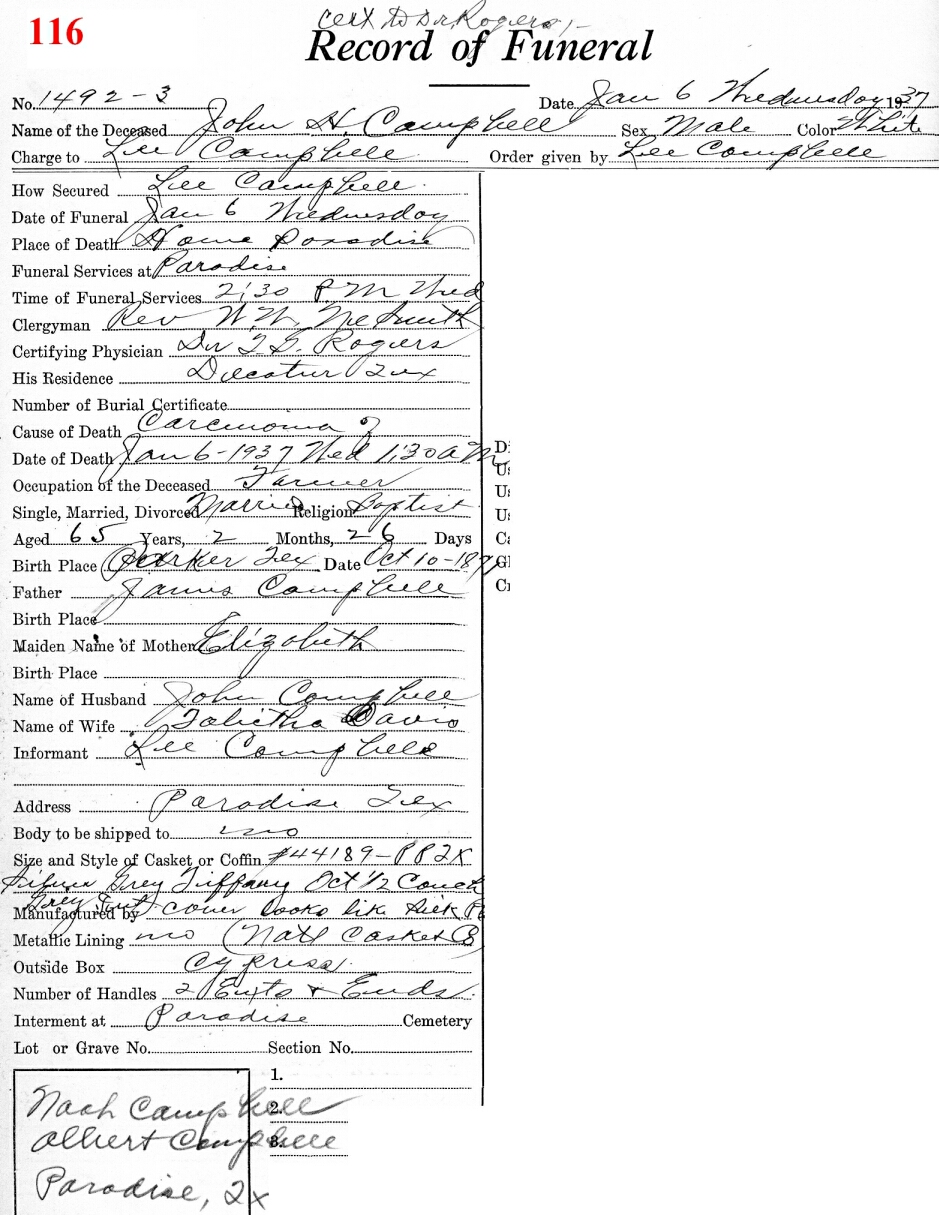 116
cert to Dr Rogers
Record of Funeral
No. 1492-3 Date Jan 6 Wednesday 1937
Name of the Deceased John H. Campbell Sex Male Color White
Charge to Lee Campbell Order given by Lee Campbell
How Secured Lee Campbell
Date of Funeral Jan 6 Wednesday
Place of Death Home Paradise
Funeral Services at Paradise
Time of Funeral Services 2:30 P.M. Wed
Clergyman Rev W.W.
Certifying Physician Dr Rogers
His Residence Decatur Tex
Number of Burial Certificate
Cause of Death Carcinoma ?
Date of Death Jan 6-1937 Wed 1:30 a m
Occupation of the Deceased Farmer
Single, Married, Divorced Married Religion Baptist
Aged 65 Years, 2 Months, 26 Days
Birth Place Parker Tex Date Oct 10-1871
Father James Campbell
Birth Place
Maiden Name of Mother Elizabeth
Birth Place
Name of Husband John Campbell
Name of Wife Tabitha Davis
Informant Lee Campbell
Address Paradise Tex
Body to be shipped to no
Size and Style of Casket or Coffin #44189-PP2X
Silver Grey Tiffany Oct 1/2 Couch
Grey cover looks like silk
Manufactured by
Metallic Lining no (Natl Casket Co
Outside Box Cypress
Number of Handles 2 Exts + Ends
Interment at Paradise Cemetery
Lot or Grave No. Section No.
1.
2.
3.
Noah Campbell
Albert Campbell
Paradise, Tx